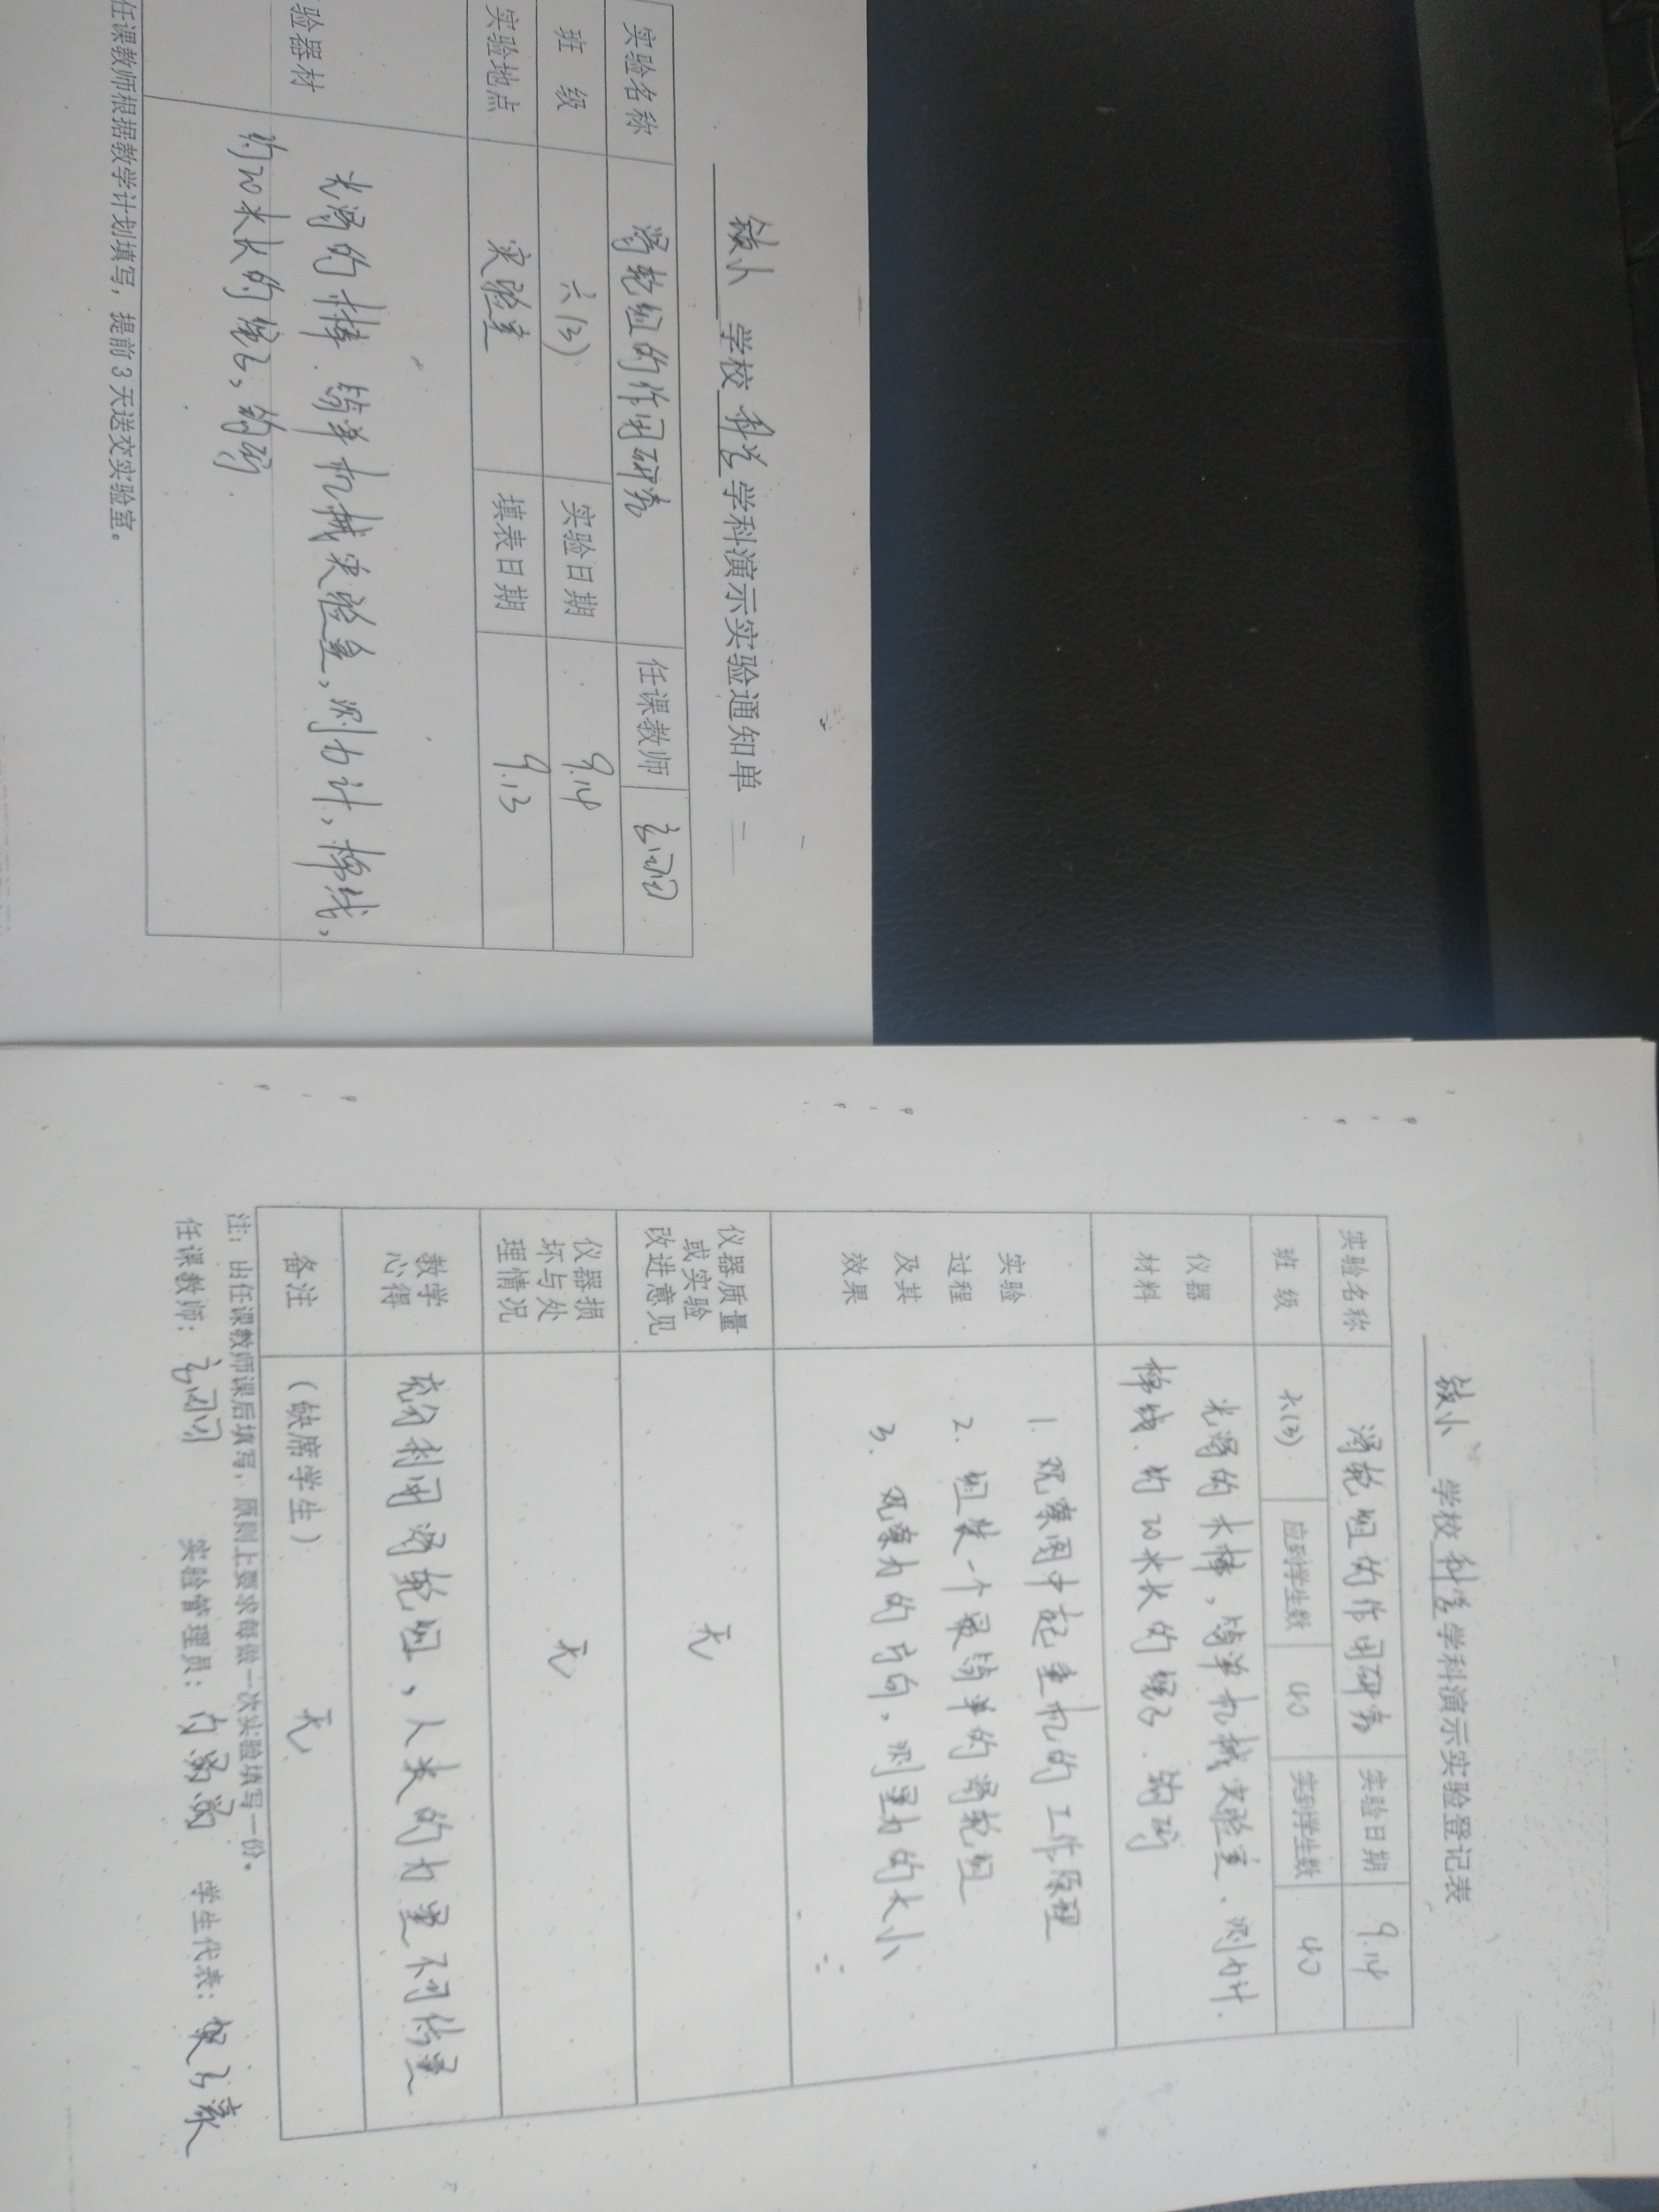 学校 科学 学科演示实验通知单
实验名称 滑轮组的作用研究 任课教师
班 级 六(3) 实验日期 9.14
实验地点 实验室 填表日期 9.13
验器材 光滑的棒、简单机械实验盒,测力计,棉线,
约20米长的绳子,钩码
任课教师根据教学计划填写,提前3天送交实验室。
学校 科学 学科演示实验登记表
实验名称 滑轮组的作用研究 实验日期 9.14
班 级 六(3) 应到学生数 40 实到学生数 40
仪器材料 光滑的木棒,简单机械实验盒、测力计、
棉线、约20米长的绳子、钩码
实验过程及其效果 1. 观察图中起重机的工作原理
2. 组装一个最简单的滑轮组
3. 观察力的方向,测量力的大小
仪器质量或实验改进意见 无
仪器损坏与处理情况 无
教学心得 充分利用滑轮组,人类的力量不可估量
备注 (缺席学生) 无
注:由任课教师课后填写,原则上要求每做一次实验填写一份。
任课教师: 实验管理员: 学生代表: